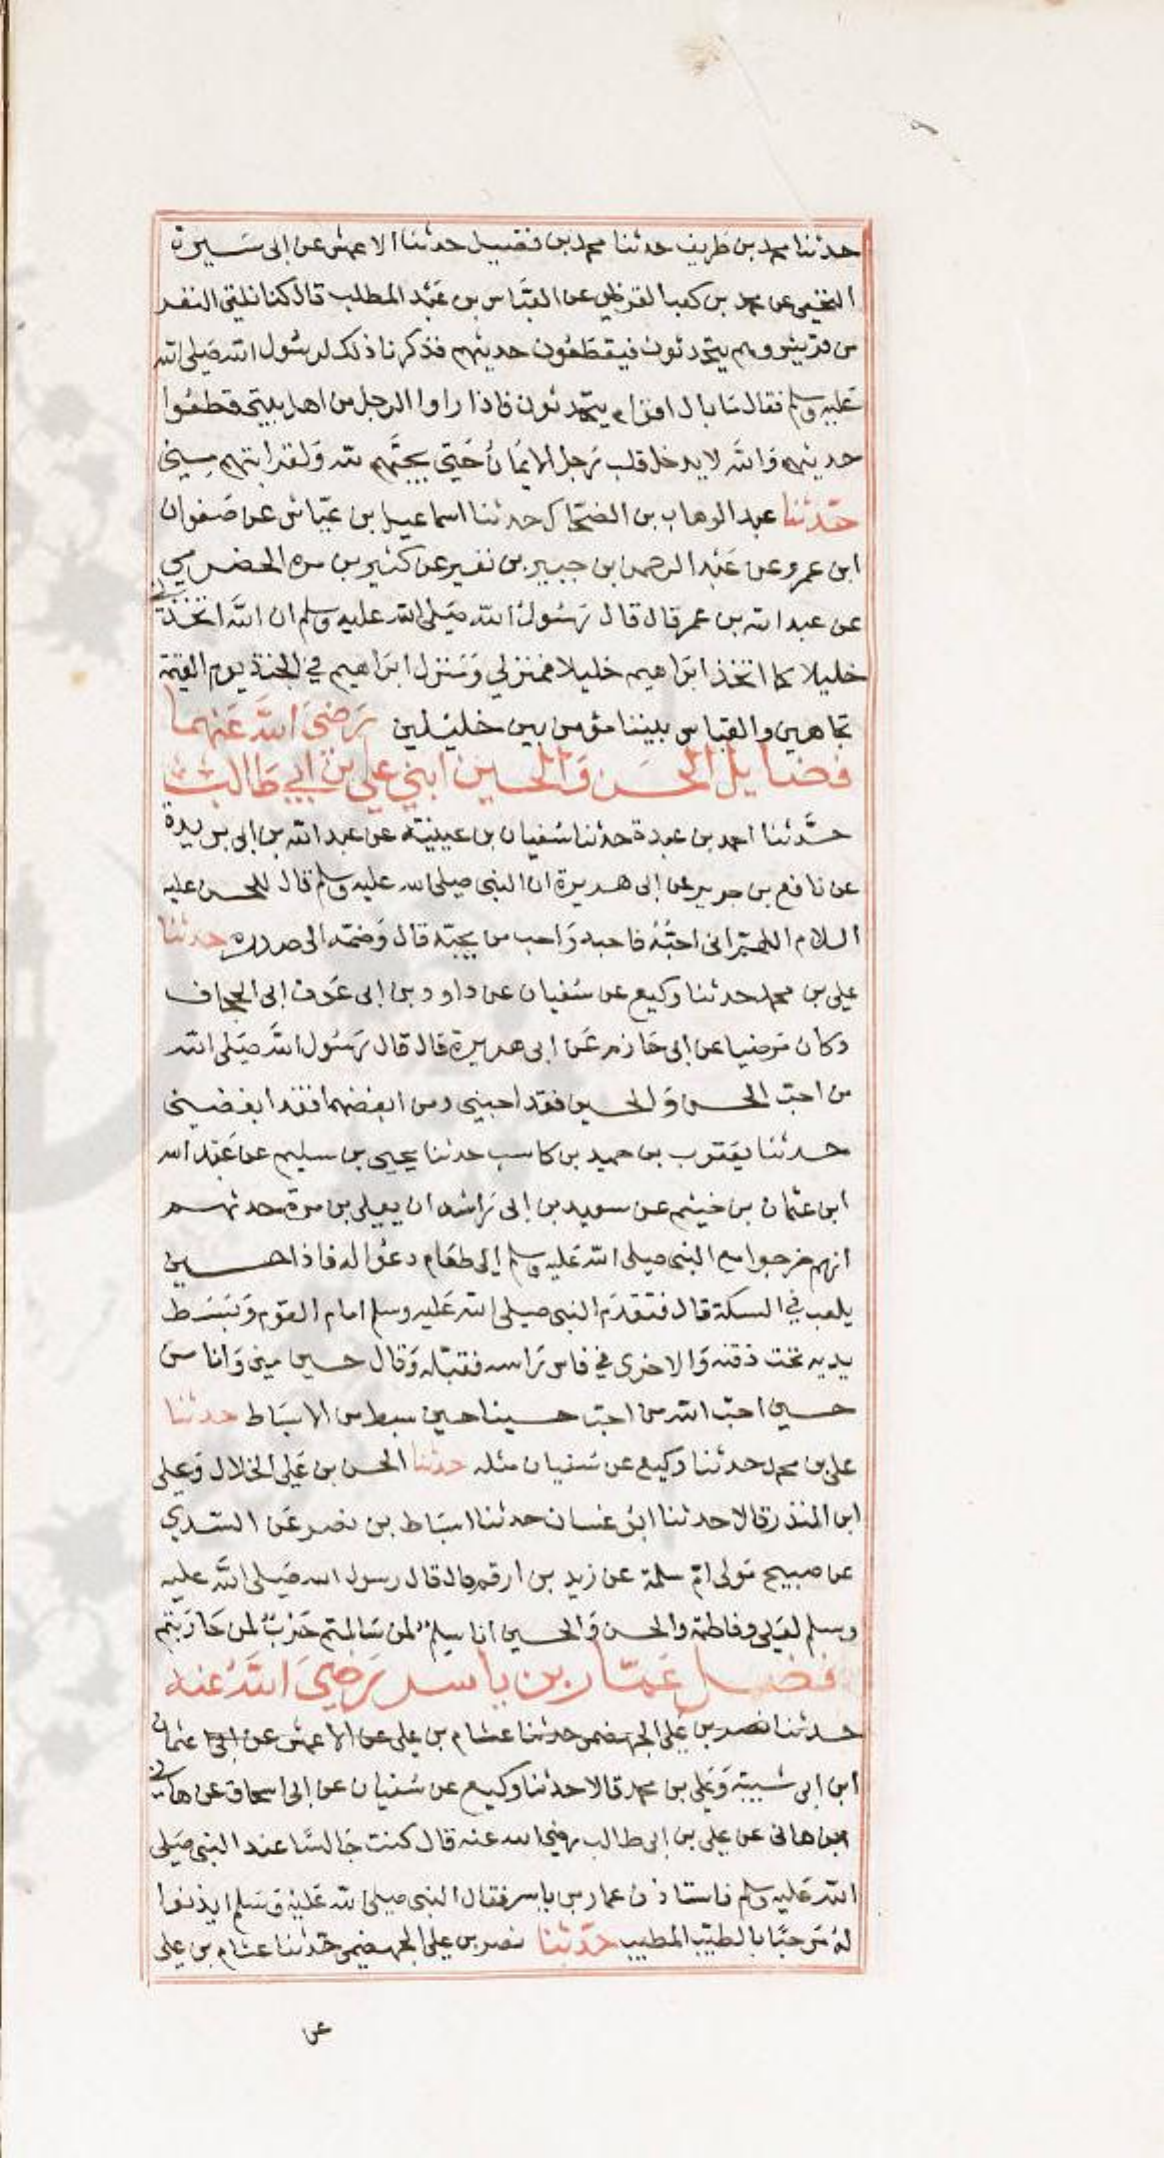 حدثنا محمد بن طريف حدثنا محمد بن فضيل حدثنا الاعمش عن ابى سبرة
النخعي عن محمد بن كعب القرظي عن العباس بن عبد المطلب قال كنا نلتى النفر
من قريش وهم يتحدثون فيقطعون حديثهم فذكرنا ذلك لرسول الله صلى الله
عليه وسلم فقال ما بال اقوام يتحدثون فاذا راوا الرجل من اهل بيتى قطعوا
حديثهم والله لا يدخل قلب رجل الايمان حتى يحبهم لله ولقرابتهم مني
حدثنا عبد الوهاب بن الضحاك حدثنا اسماعيل بن عياش عن صفوان
ابن عمرو عن عبد الرحمن بن جبير بن نفير عن كثير بن مره الحضرمي
عن عبد الله بن عمر قال قال رسول الله صلى الله عليه وسلم ان الله اتخذني
خليلا كما اتخذ ابراهيم خليلا فمنزلي ومنزل ابراهيم في الجنة يوم القيمة
تجاهين والعباس بيننا مؤمن بين خليلين رضي الله عنهما
فضايل الحسن والحسين ابني علي بن ابي طالب
حدثنا احمد بن عبدة حدثنا سفيان بن عيينة عن عبد الله بن ابى بريدة
عن نافع بن جرير عن ابى هريرة ان النبى صلى الله عليه وسلم قال للحسن عليه
السلام اللهم انى احبه فاحبه واحب من يحبه قال وضمه الى صدره حدثنا
علي بن محمد حدثنا وكيع عن سفيان عن داود بن ابى عوف ابى الجحاف
وكان مرضيا عن ابى حازم عن ابى هريرة قال قال رسول الله صلى الله
من احب الحسن والحسين فقد احبني ومن ابغضهما فقد ابغضني
حدثنا يعقوب بن حميد بن كاسب حدثنا يحيى بن سليم عن عبد الله
ابن عثمان بن خيثم عن سعيد بن ابى راشد ان يعلى بن مرة حدثهم
انهم خرجوا مع النبى صلى الله عليه وسلم الى طعام دعوا له فاذا حسين
يلعب في السكة قال فتقدم النبى صلى الله عليه وسلم امام القوم وبسط
يديه تحت ذقنه والاخرى في فاس راسه فقبله وقال حسين منى وانا من
حسين احب الله من احب حسينا حسين سبط من الاسباط حدثنا
علي بن محمد حدثنا وكيع عن سفيان مثله حدثنا الحسن بن علي الخلال وعلي
ابن المنذر قالا حدثنا ابو غسان حدثنا اسباط بن نصر عن السدي
عن صبيح مولى ام سلمة عن زيد بن ارقم قال قال رسول الله صلى الله عليه
وسلم لعلي وفاطمة والحسن والحسين انا سلم لمن سالمتم حرب لمن حاربتم
فضل عمار بن ياسر رضي الله عنه
حدثنا نصر بن علي الجهضمى حدثنا عثام بن علي عن الاعمش عن ابى عثمان
ابن ابى شيبة وعلي بن محمد قالا حدثنا وكيع عن سفيان عن ابى اسحاق عن هاني
ابن هانى عن علي بن ابى طالب رضي الله عنه قال كنت جالسا عند النبى صلى
الله عليه وسلم فاستاذن عمار بن ياسر فقال النبى صلى الله عليه وسلم ايذنوا
له مرحبا بالطيب المطيب حدثنا نصر بن علي الجهضمى حدثنا عثام بن علي
عن